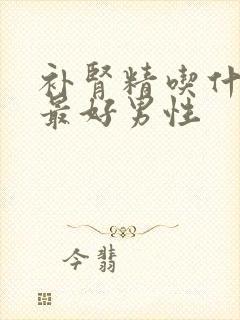 补肾精喫什
最好男性
今翡